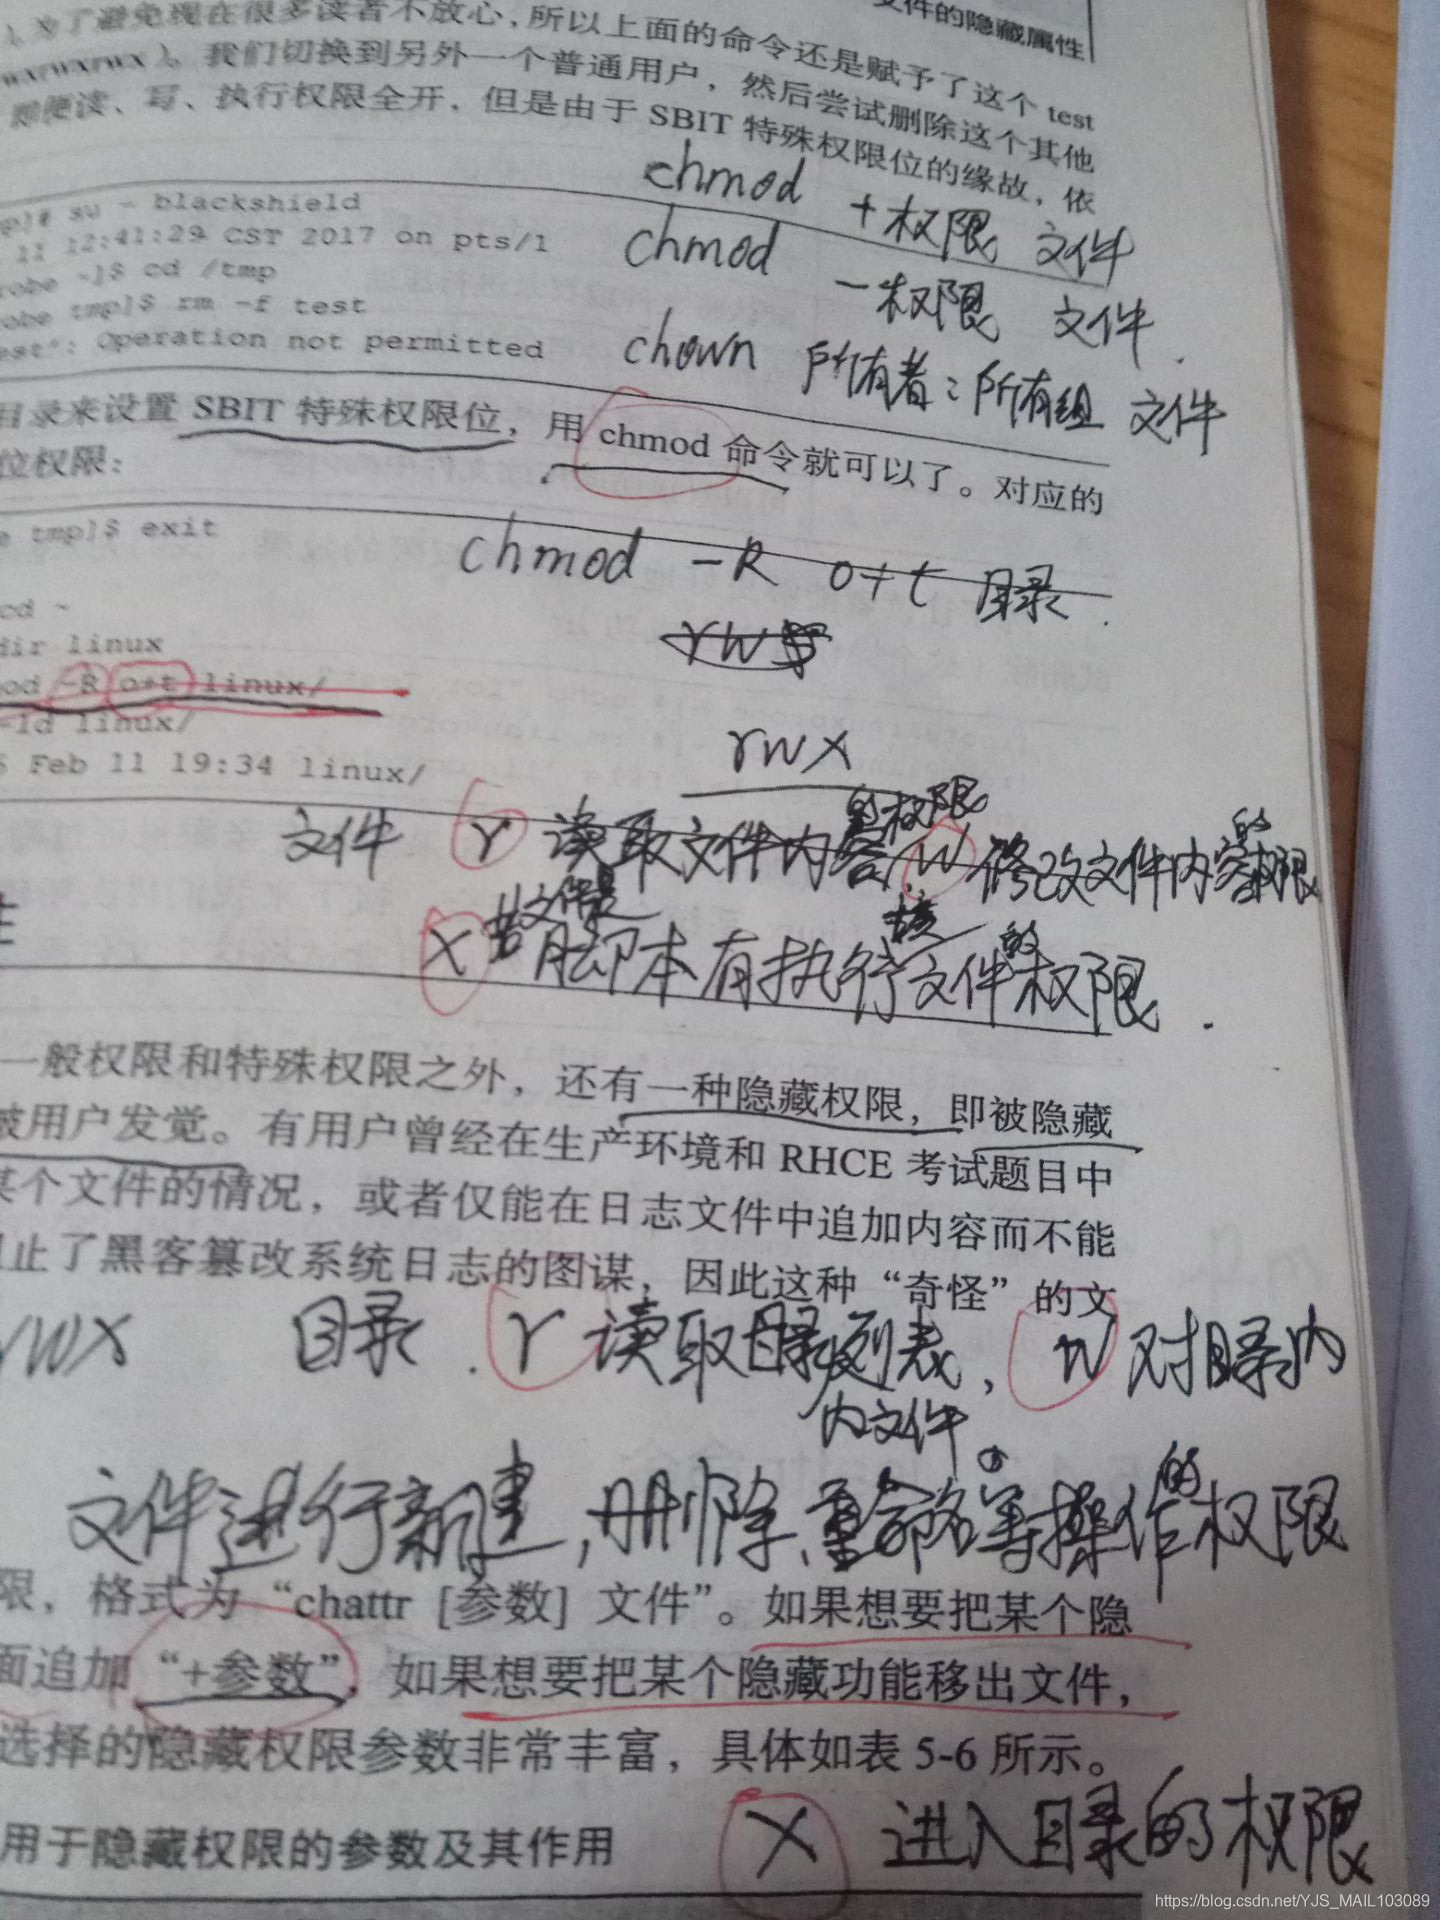 文件的隐藏属性
为了避免现在很多读者不放心,所以上面的命令还是赋予了这个 test
wxrwxrwx)。我们切换到另外一个普通用户，然后尝试删除这个其他
即便读、写、执行权限全开，但是由于 SBIT 特殊权限位的缘故，依
chmod +权限 文件
mp]# su - blackshield
11 12:41:29 CST 2017 on pts/1
chmod -权限 文件.
robe ~]$ cd /tmp
obe tmp]$ rm -f test
est': Operation not permitted
chown 所有者:所有组 文件
目录来设置 SBIT 特殊权限位，用 chmod 命令就可以了。对应的
位权限：
e tmp]$ exit
chmod -R o+t 目录.
cd ~
dir linux
od -R o+t linux/
-ld linux/
Feb 11 19:34 linux/
rwx
文件 r 读取文件内容的权限, w 修改文件内容的权限
x 若文件是脚本有执行该文件的权限.
一般权限和特殊权限之外，还有一种隐藏权限，即被隐藏
被用户发觉。有用户曾经在生产环境和 RHCE 考试题目中
某个文件的情况，或者仅能在日志文件中追加内容而不能
止了黑客篡改系统日志的图谋，因此这种“奇怪”的文
rwx 目录. r 读取目录列表, w 对目录内
内文件。
文件进行新建,删除、重命名等操作的权限
限，格式为“chattr [参数] 文件”。如果想要把某个隐
面追加“+参数”，如果想要把某个隐藏功能移出文件，
选择的隐藏权限参数非常丰富，具体如表 5-6 所示。
x 进入目录的权限
用于隐藏权限的参数及其作用
https://blog.csdn.net/YJS_MAIL103089